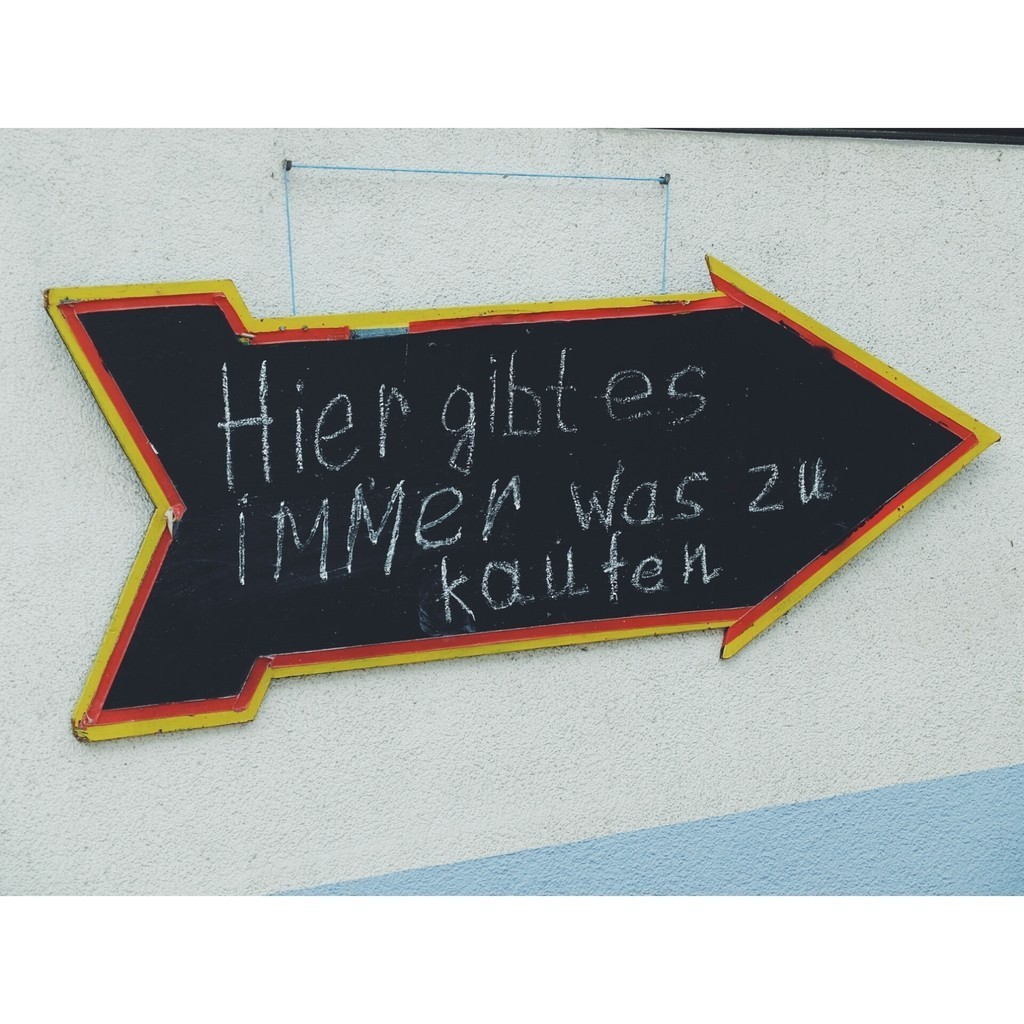 Hier gibt es
immer was zu
kaufen